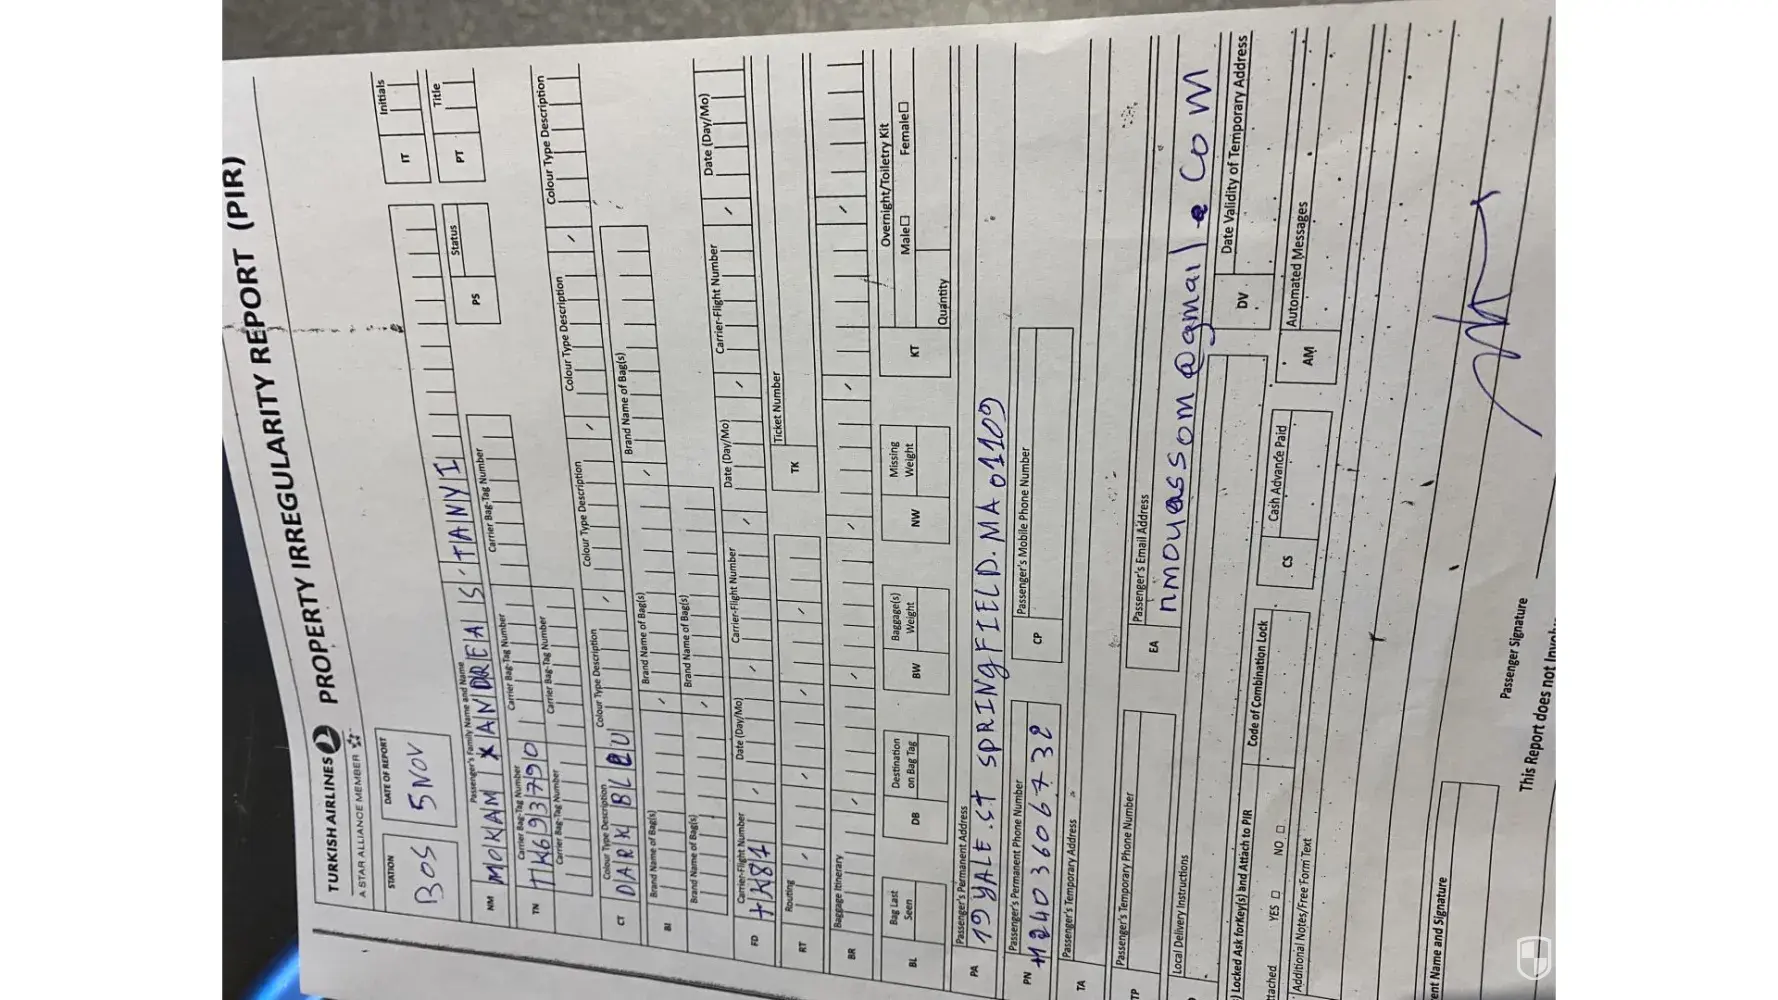 TURKISH AIRLINES PROPERTY IRREGULARITY REPORT (PIR)
A STAR ALLIANCE MEMBER
STATION DATE OF REPORT
BOS 5 NOV
Passenger's Family Name and Name IT Initials
NM MOKAM X ANDREA S. TANYI
PS Status PT Title
Carrier Bag-Tag Number Carrier Bag-Tag Number Carrier Bag-Tag Number
TN TK693790
Carrier Bag-Tag Number Carrier Bag-Tag Number
Colour Type Description Colour Type Description Colour Type Description Colour Type Description Colour Type Description
CT DARK BLEU
Brand Name of Bag(s) Brand Name of Bag(s) Brand Name of Bag(s)
BI
Brand Name of Bag(s) Brand Name of Bag(s)
Carrier-Flight Number Date (Day/Mo) Carrier-Flight Number Date (Day/Mo) Carrier-Flight Number Date (Day/Mo)
FD TK81
Routing TK Ticket Number
RT
Baggage Itinerary
BR
BL Bag Last Seen DB Destination on Bag Tag BW Baggage(s) Weight NW Missing Weight KT Overnight/Toiletry Kit
Male Female
Quantity
Passenger's Permanent Address
PA 19 YALE.ST SPRINGFIELD.MA 01109
Passenger's Permanent Phone Number CP Passenger's Mobile Phone Number
PN +12403606732
TA Passenger's Temporary Address
TP Passenger's Temporary Phone Number EA Passenger's Email Address
nmouassom@gmail.com
Local Delivery Instructions DV Date Validity of Temporary Address
Locked Ask for Key(s) and Attach to PIR Code of Combination Lock CS Cash Advance Paid AM Automated Messages
YES NO
Additional Notes/Free Form Text
Name and Signature Passenger Signature
This Report does not